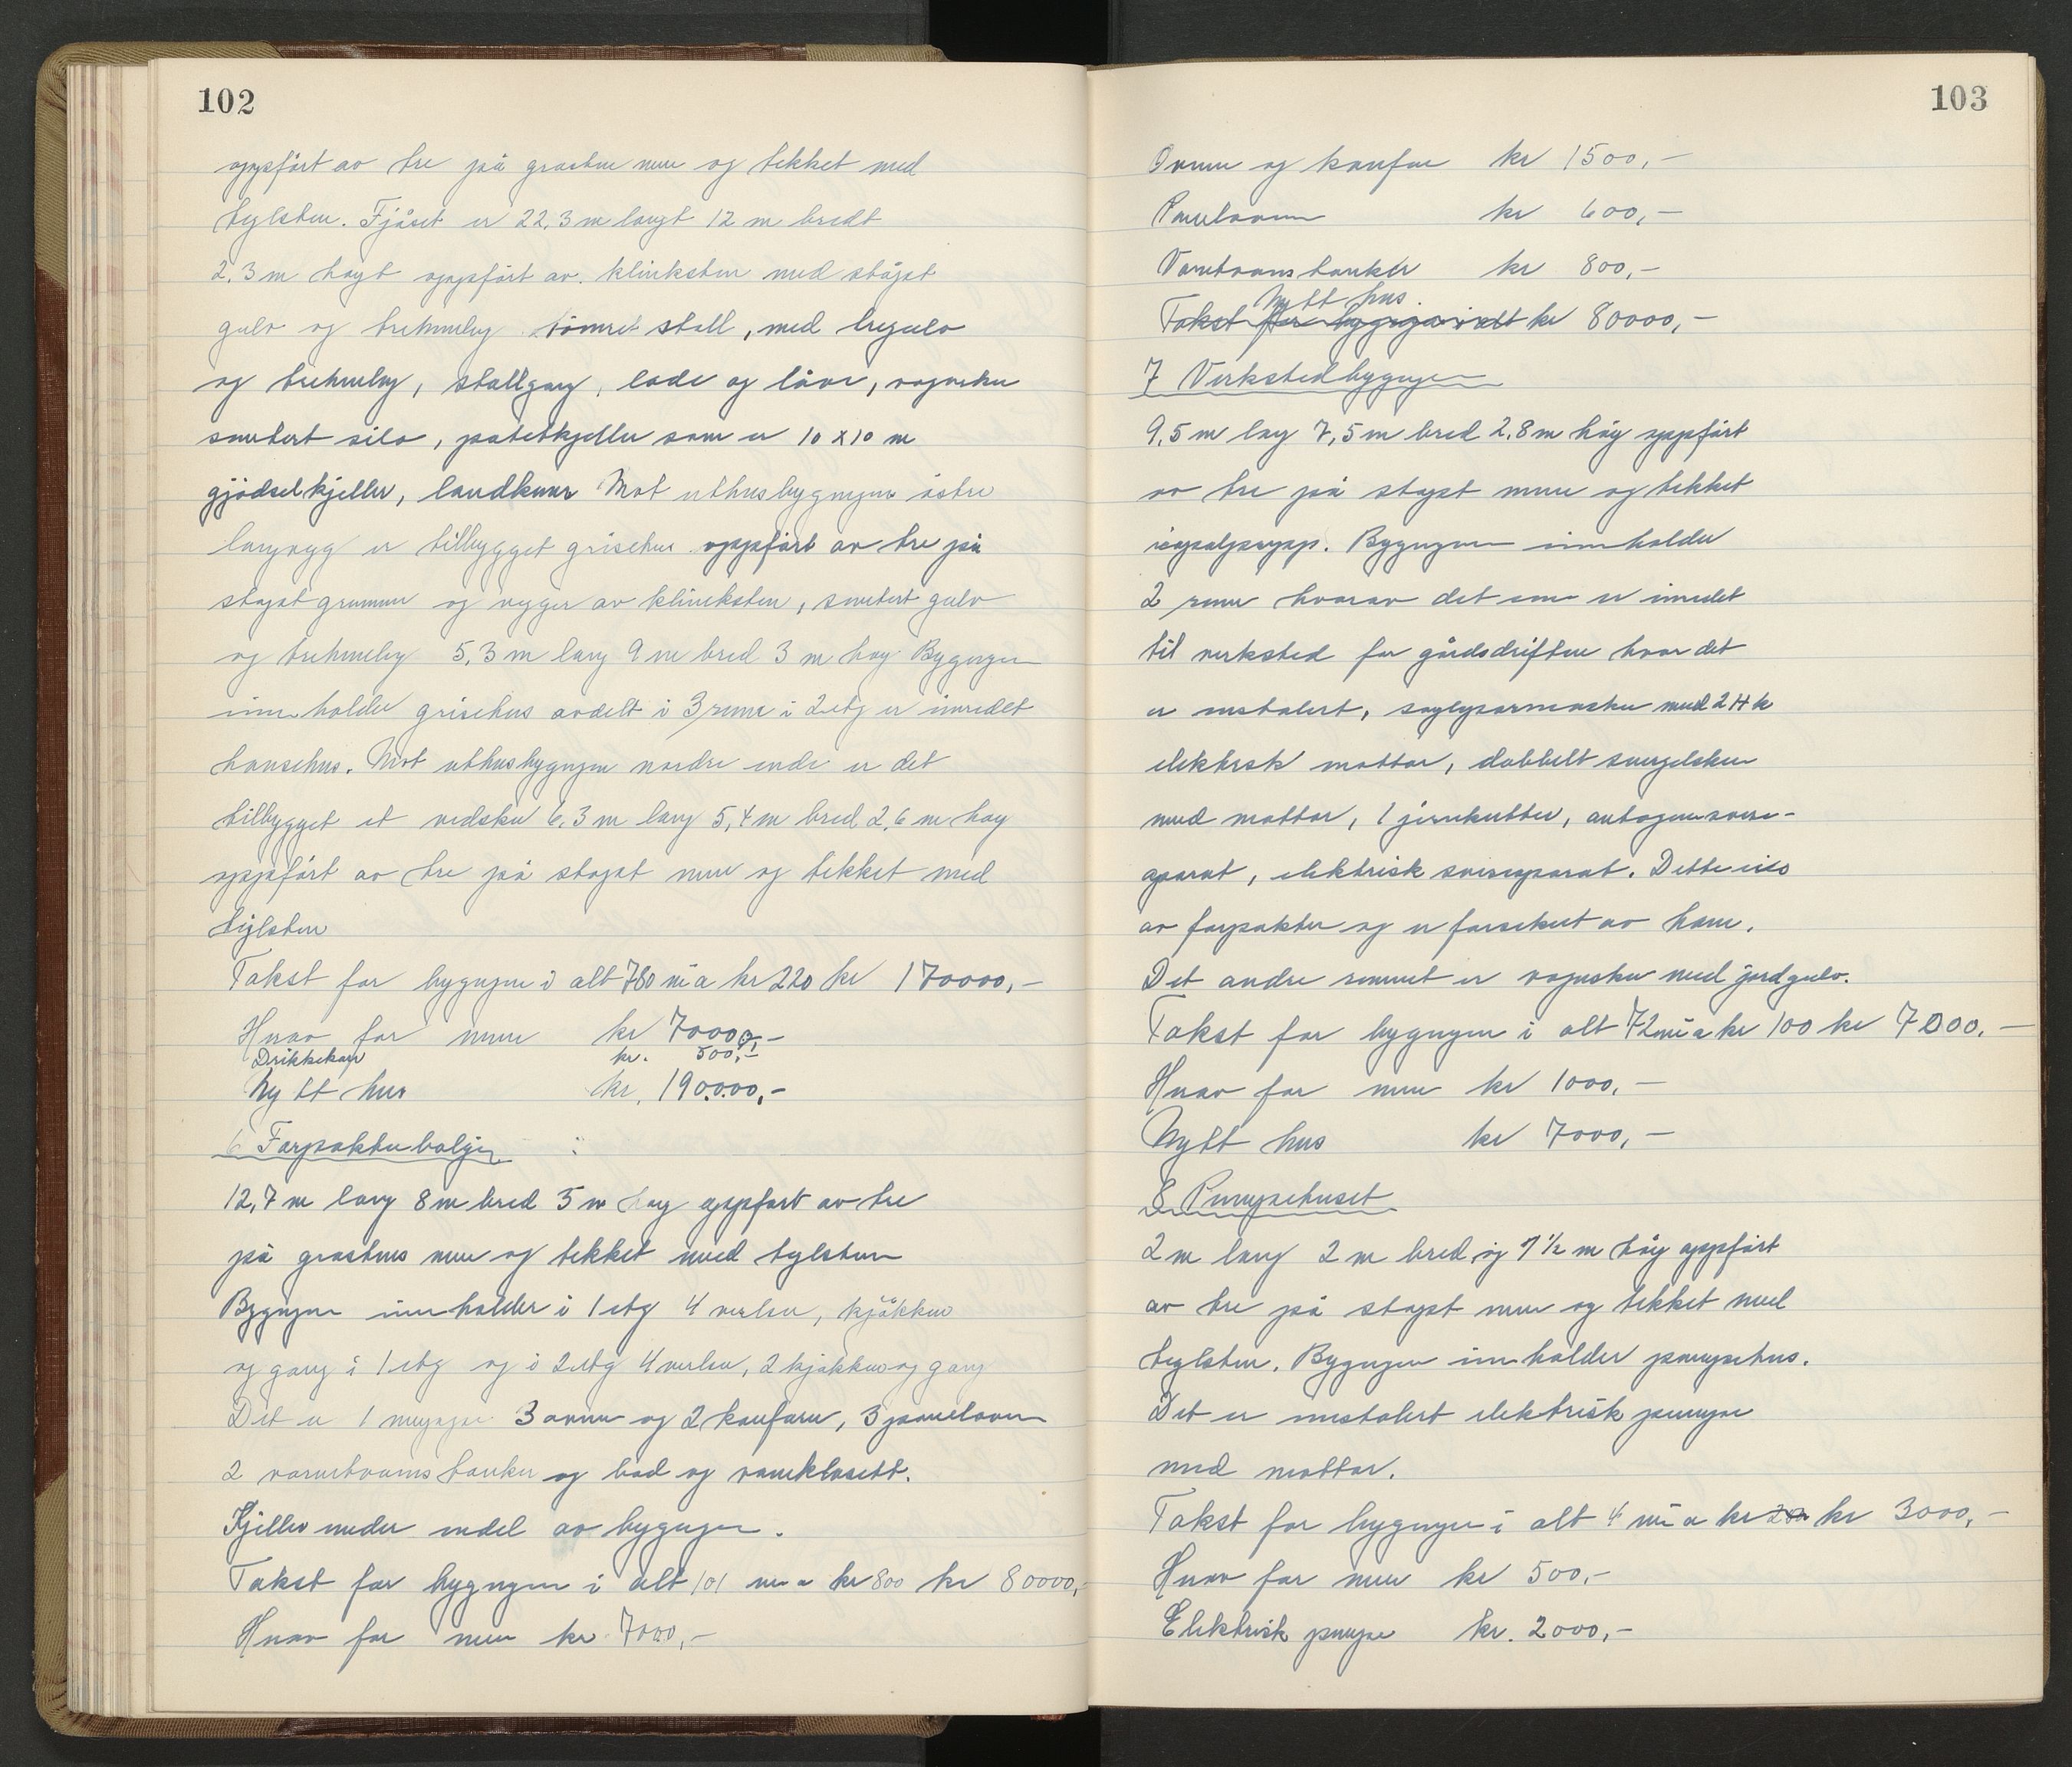 102
oppført av tre på grasten mur og tekket med
teglsten. Fjåset er 22,3 m langt 12 m bredt
2,3 m høgt oppført av. klinksten med støpt
gulv og trehimling tømret stall, med tregulv
og trehimling, stallgang, lade og låve, vognsku
sementert silo, potetkjeller som er 10 x 10 m
gjødselkjeller, landkum Mot uthusbygngen østre
langvegg er tilbygget grisehus oppført av tre på
støpt grunmur og vegger av klinksten, sementert gulv
og trehimling 5,3 m lang 9 m bred 3 m høg Bygngen
inneholder grisehus avdelt i 3 rum i 2 etg er innredet
hønsehus. Mot uthusbygngen nordre ende er det
tilbygget et vedsku 6,3 m lang 5,4 m bred 2,6 m høg
oppført av tre på støpt mur og tekket med
teglsten
Takst for bygngen i alt 780 m² a kr 220 kr 170000,-
Herav for mur kr 7000,-
Drikkekar kr. 500,-
Nytt hus kr. 190000,-
6 Forpakterbolgen
12,7 m lang 8 m bred 5 m høg oppført av tre
på grastens mur og tekket med teglsten
Bygngen inneholder i 1 etg 4 verelser, kjøkken
og gang i 1 etg og i 2 etg 4 verelser, 2 kjøkken og gang
Det er 1 murpipe 3 ovner og 2 komfurer, 3 panelovner
2 varmtvanns tanker og bad og vannklosett.
Kjeller under endel av bygngen.
Takst for bygngen i alt 101 m² a kr 800 kr 80000,-
Herav for mur kr 7000,-
103
Ovner og komfur kr 1500,-
Panelovner kr 600,-
Varmtvanns tanker kr 800,-
Nytt hus.
Takst for bygngen i alt kr 80000,-
7 Verkstedbygngen
9,5 m lang 7,5 m bred 2,8 m høg oppført
av tre på støpt mur og tekket
icopalpapp. Bygngen inneholder
2 rum hvorav det ene er innredet
til verksted for gårdsdriften hvor det
er instalert, med 2 Hk
elektrisk mottor, dobbelt smergelskive
med mottor, 1 jernkutter, autogensveise-
aparat, elektrisk sveiseaparat. Dette eies
av forpakter og er forsikret av ham.
Det andre rummet er vognsku med jordgulv.
Takst for bygngen i alt 72 m² a kr 100 kr 7000,-
Herav for mur kr 1000,-
Nytt hus kr 7000,-
8 Pumpehuset
2 m lang 2 m bred og 1 ½ m høg oppført
av tre på støpt mur og tekket med
teglsten. Bygngen inneholder pumpehus.
Det er innstalert elektrisk pumpe
med mottor.
Takst for bygngen i alt 4 m² a kr kr 3000,-
Herav for mur kr 500,-
Elektrisk pumpe kr. 2000,-